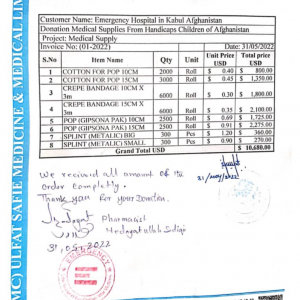 Customer Name: Emergency Hospital in Kabul Afghanistan
Donation Medical Supplies From Handicaps Children of Afghanistan
Project: Medical Supply
Invoice No: (01-2022) Date: 31/05/2022
S.No Item Name Qty Unit Unit Price USD Total price USD
1 COTTON FOR POP 10CM 2000 Roll $ 0.40 $ 800.00
2 COTTON FOR POP 15CM 3000 Roll $ 0.45 $ 1,350.00
3 CREPE BANDAGE 10CM X 3m 6000 Roll $ 0.30 $ 1,800.00
4 CREPE BANDAGE 15CM X 3m 6000 Roll $ 0.35 $ 2,100.00
5 POP (GIPSONA PAK) 10CM 2500 Roll $ 0.69 $ 1,725.00
6 POP (GIPSONA PAK) 15CM 2500 Roll $ 0.91 $ 2,275.00
7 SPLINT (METALIC) BIG 300 Pcs $ 1.20 $ 360.00
8 SPLINT (METALIC) SMALL 300 Pcs $ 0.90 $ 270.00
Grand Total USD $ 10,680.00
We received all amount of the
order completly.
Thank you for your Donation.
Pharmacist
31/May/2022
31,05,2022
EMERGENCY
MC) ULFAT SAFIE MEDICINE & MEDICAL